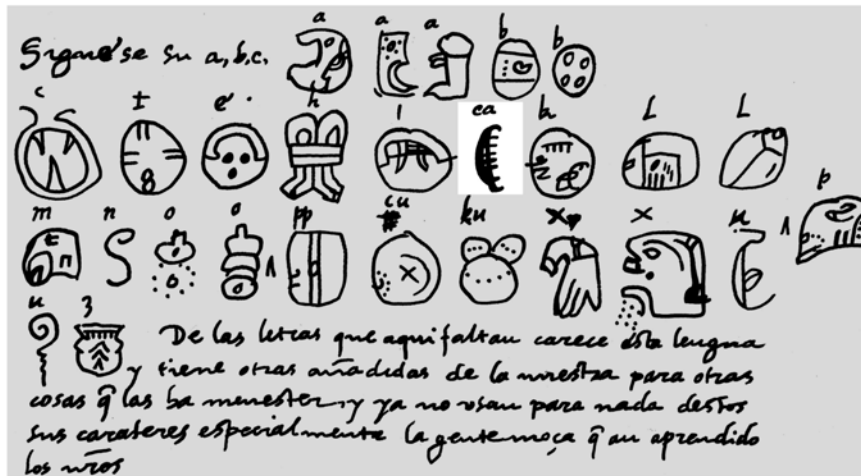 Siguese su a, b, c. a a a b b
c t e h i ca k l l
m n o o pp cu ku x x u p
u z De las letras que aqui faltan carece esta lengua
y tiene otras añadidas de la nuestra para otras
cosas q̄ las ha menester, y ya no usan para nada destos
sus carateres especialmente la gente moça q̄ an aprendido
los nr̄os